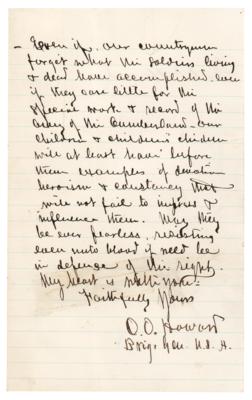 - Even if our countrymen
forget what the soldiers living
& dead have accomplished - even
if they care little for the
special work & record of the
Army of the Cumberland - our
children & children's children
will at least have before
them examples of devotion
heroism & constancy that
will not fail to impress &
influence them. May they
be ever fearless, resisting
even unto blood if need be
in defence of the right.
My heart is with you -
Faithfully Yours
O. O. Howard
Brig. Gen. U.S.A.